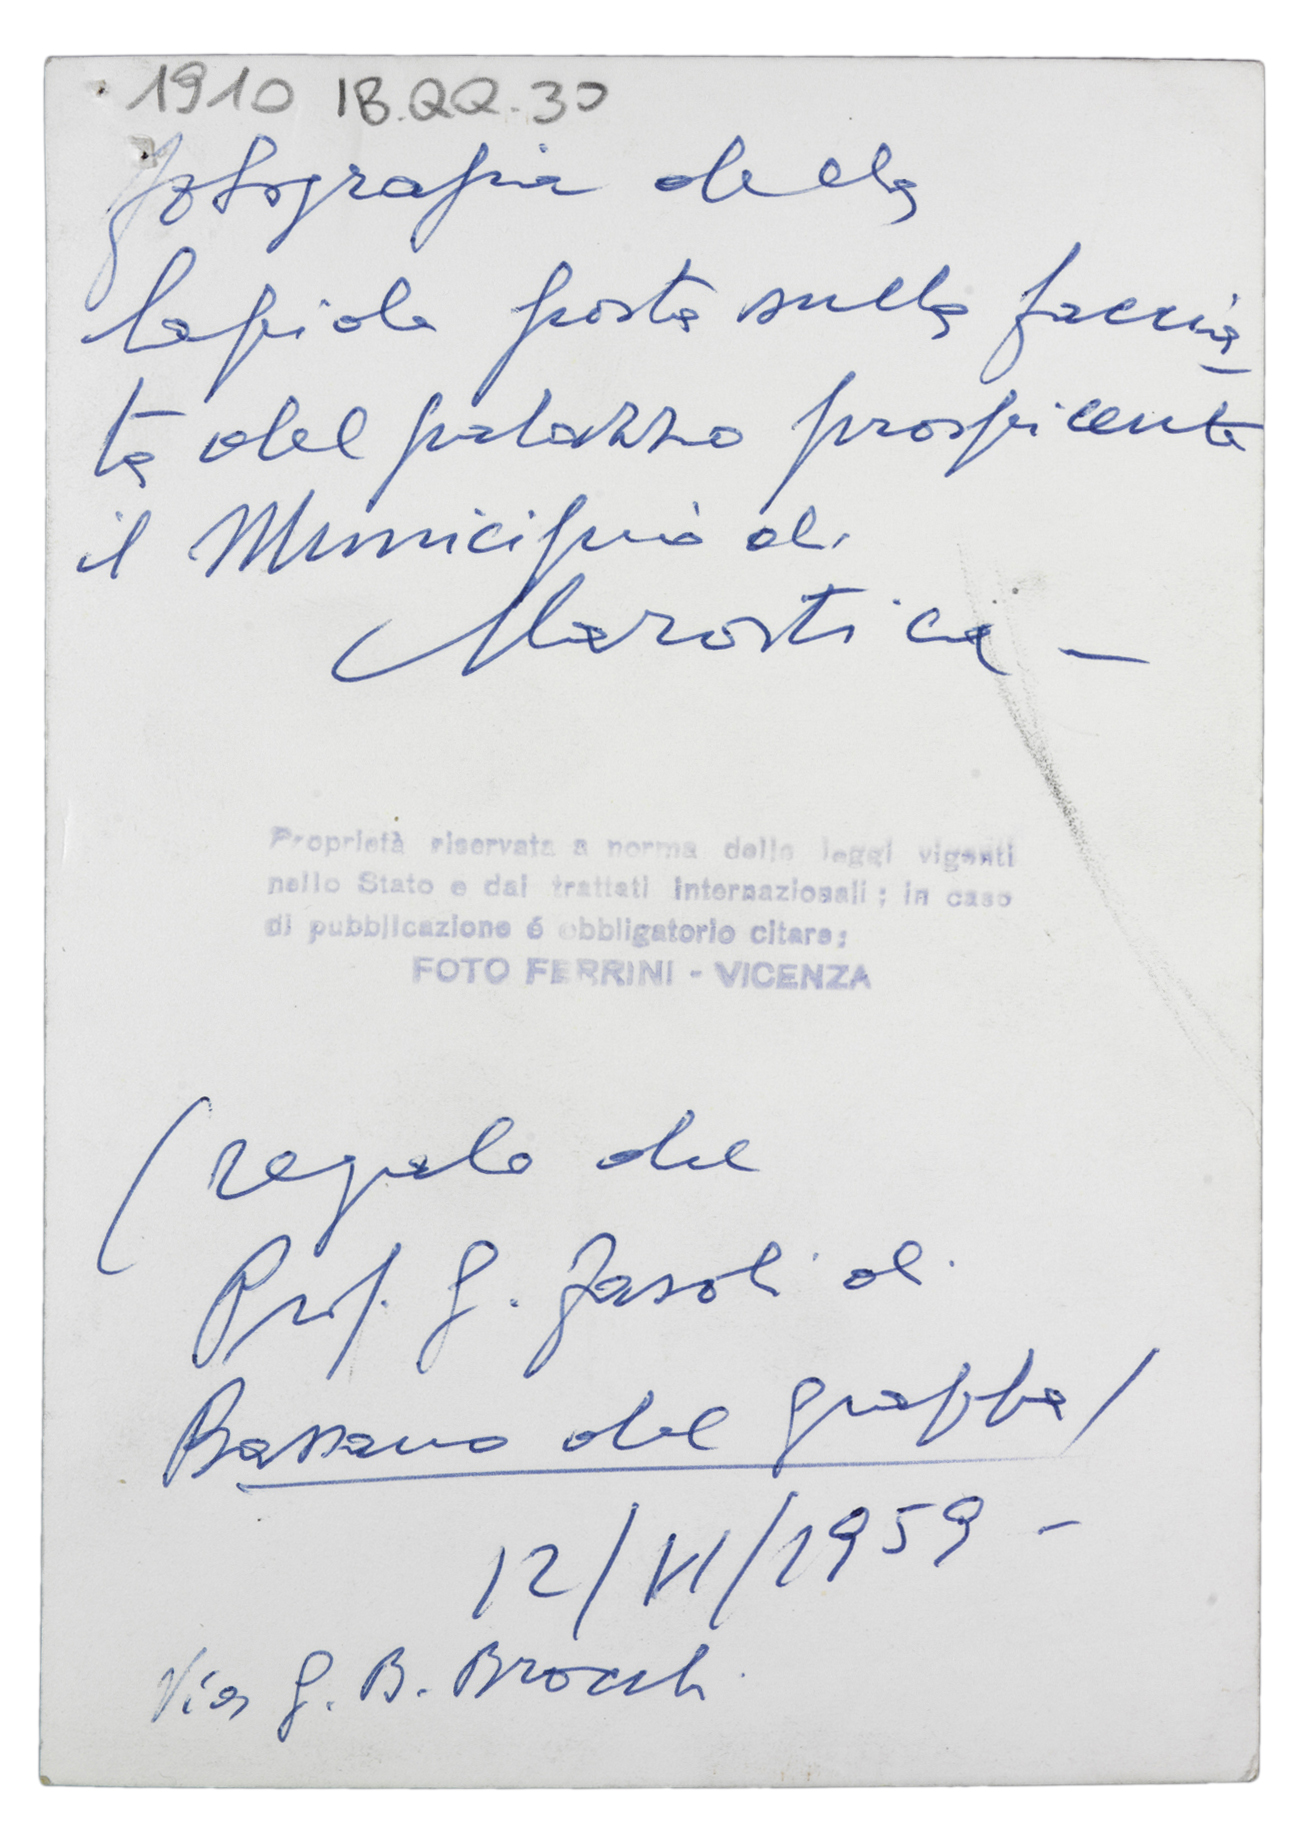 1910 IB.QQ.30
fotografia della
lapide posta sulla faccia-
ta del palazzo prospicente
il Municipio di
Marostica -
Proprietà riservata a norma delle leggi vigenti
nello Stato e dai trattati internazionali; in caso
di pubblicazione é obbligatorio citare:
FOTO FERRINI - VICENZA
(regalo del
Prof. G. Fasoli di
Bassano del Grappa)
12/VI/1959 -
Via G. B. Brocchi